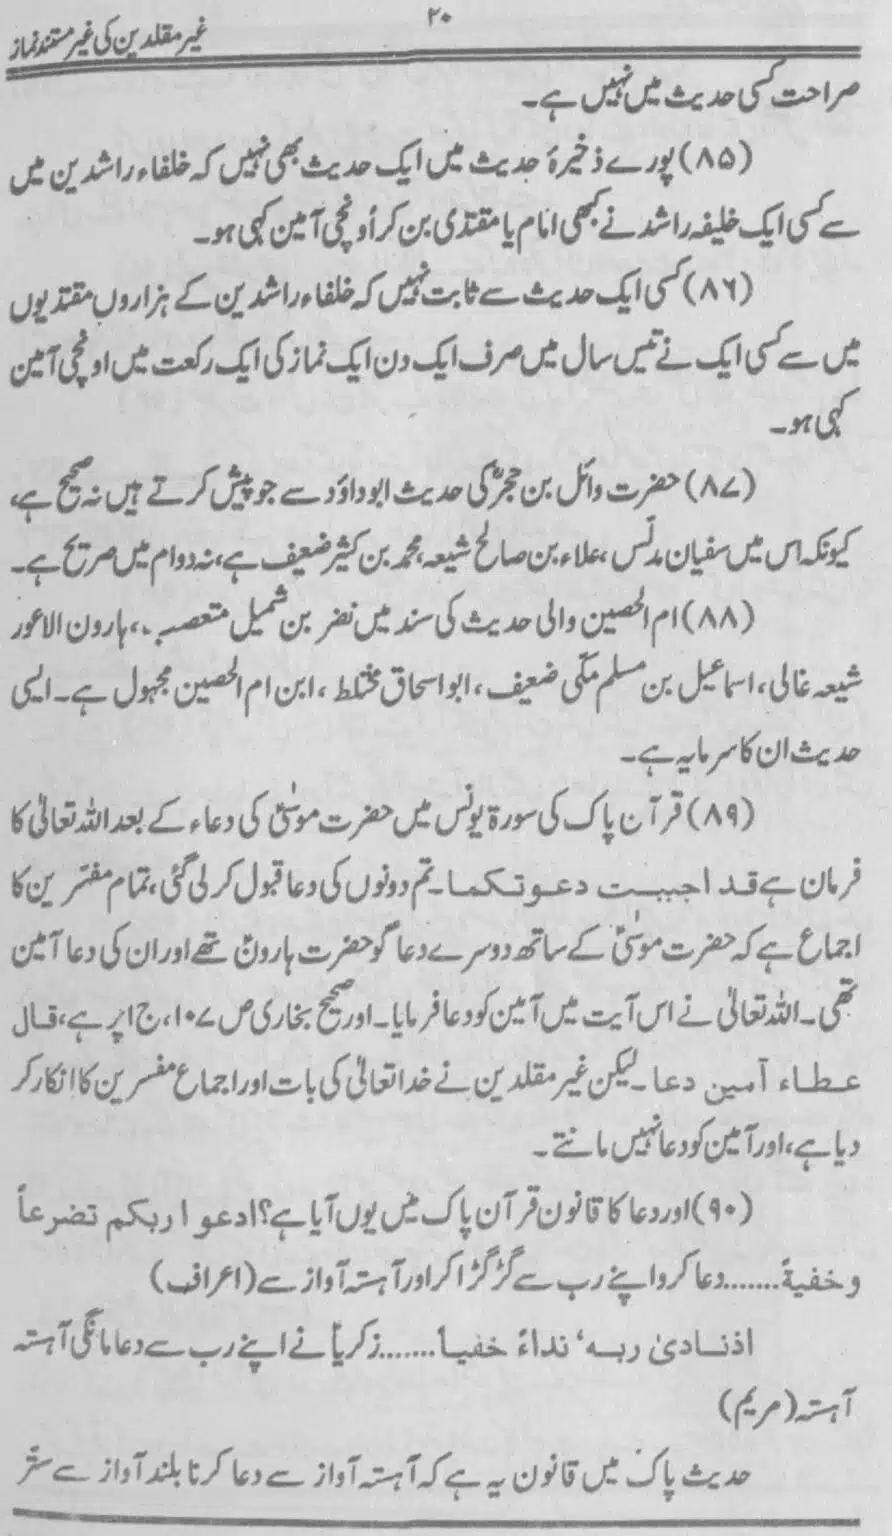 ۲۰
غیر مقلدین کی غیر مستند نماز
صراحت کسی حدیث میں نہیں ہے۔
(۸۵) پورے ذخیرۂ حدیث میں ایک حدیث بھی نہیں کہ خلفاء راشدین میں
سے کسی ایک خلیفہ راشد نے کبھی امام یا مقتدی بن کر اُونچی آمین کہی ہو۔
(۸۶) کسی ایک حدیث سے ثابت نہیں کہ خلفاء راشدین کے ہزاروں مقتدیوں
میں سے کسی ایک نے تیس سال میں صرف ایک دن ایک نماز کی ایک رکعت میں اونچی آمین
کہی ہو۔
(۸۷) حضرت وائل بن حجرؓ کی حدیث ابوداؤد سے جو پیش کرتے ہیں نہ صحیح ہے،
کیونکہ اس میں سفیان مدلّس، علاء بن صالح شیعہ، محمد بن کثیر ضعیف ہے، نہ دوام میں صریح ہے۔
(۸۸) ام الحصین والی حدیث کی سند میں نضر بن شمیل متعصب، ہارون الاعور
شیعہ غالی، اسماعیل بن مسلم مکّی ضعیف، ابواسحاق مختلط، ابن ام الحصین مجہول ہے۔ ایسی
حدیث ان کا سرمایہ ہے۔
(۸۹) قرآن پاک کی سورۃ یونس میں حضرت موسیٰؑ کی دعاء کے بعد اللہ تعالیٰ کا
فرمان ہے قد اجیبت دعوتکما۔ تم دونوں کی دعا قبول کر لی گئی، تمام مفسّرین کا
اجماع ہے کہ حضرت موسیٰؑ کے ساتھ دوسرے دعا گو حضرت ہارونؑ تھے اور ان کی دعا آمین
تھی۔ اللہ تعالیٰ نے اس آیت میں آمین کو دعا فرمایا۔ اور صحیح بخاری ص ۱۰۷، ج ا پر ہے، قال
عطاء آمین دعا۔ لیکن غیر مقلدین نے خدا تعالیٰ کی بات اور اجماع مفسرین کا انکار کر
دیا ہے، اور آمین کو دعا نہیں مانتے۔
(۹۰) اور دعا کا قانون قرآن پاک میں یوں آیا ہے؟ ادعوا ربکم تضرعاً
وخفیة....... دعا کرو اپنے رب سے گڑگڑا کر اور آہستہ آواز سے (اعراف)
اذنادیٰ ربہ‘ نداءً خفیاً....... زکریاؑ نے اپنے رب سے دعا مانگی آہستہ
آہستہ (مریم)
حدیث پاک میں قانون یہ ہے کہ آہستہ آواز سے دعا کرنا بلند آواز سے ستّر